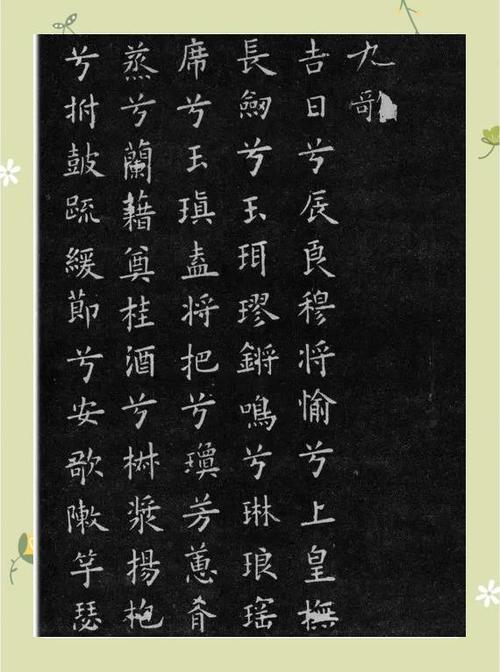 九歌
吉日兮辰良穆将愉兮上皇撫
長劒兮玉珥璆鏘鳴兮琳琅瑶
席兮玉瑱盍将把兮瓊芳蕙肴
蒸兮蘭藉奠桂酒兮椒漿揚枹
兮拊鼓疏緩節兮安歌陳竽瑟